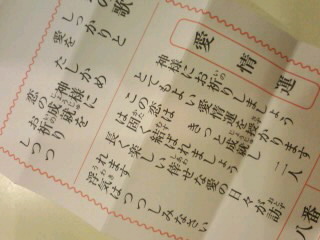 八番
愛情運
神様にお祈りしましょう
とてもよい愛情運を授かります 二人
この恋はきっと成就し
は固く結ばれましょう
長く楽しい倖せな愛の日々が訪
れます 浮気はつつしみなさい
の歌
愛をしっかりと
たしかめ
神様に
恋の成就を
お祈りしつつ